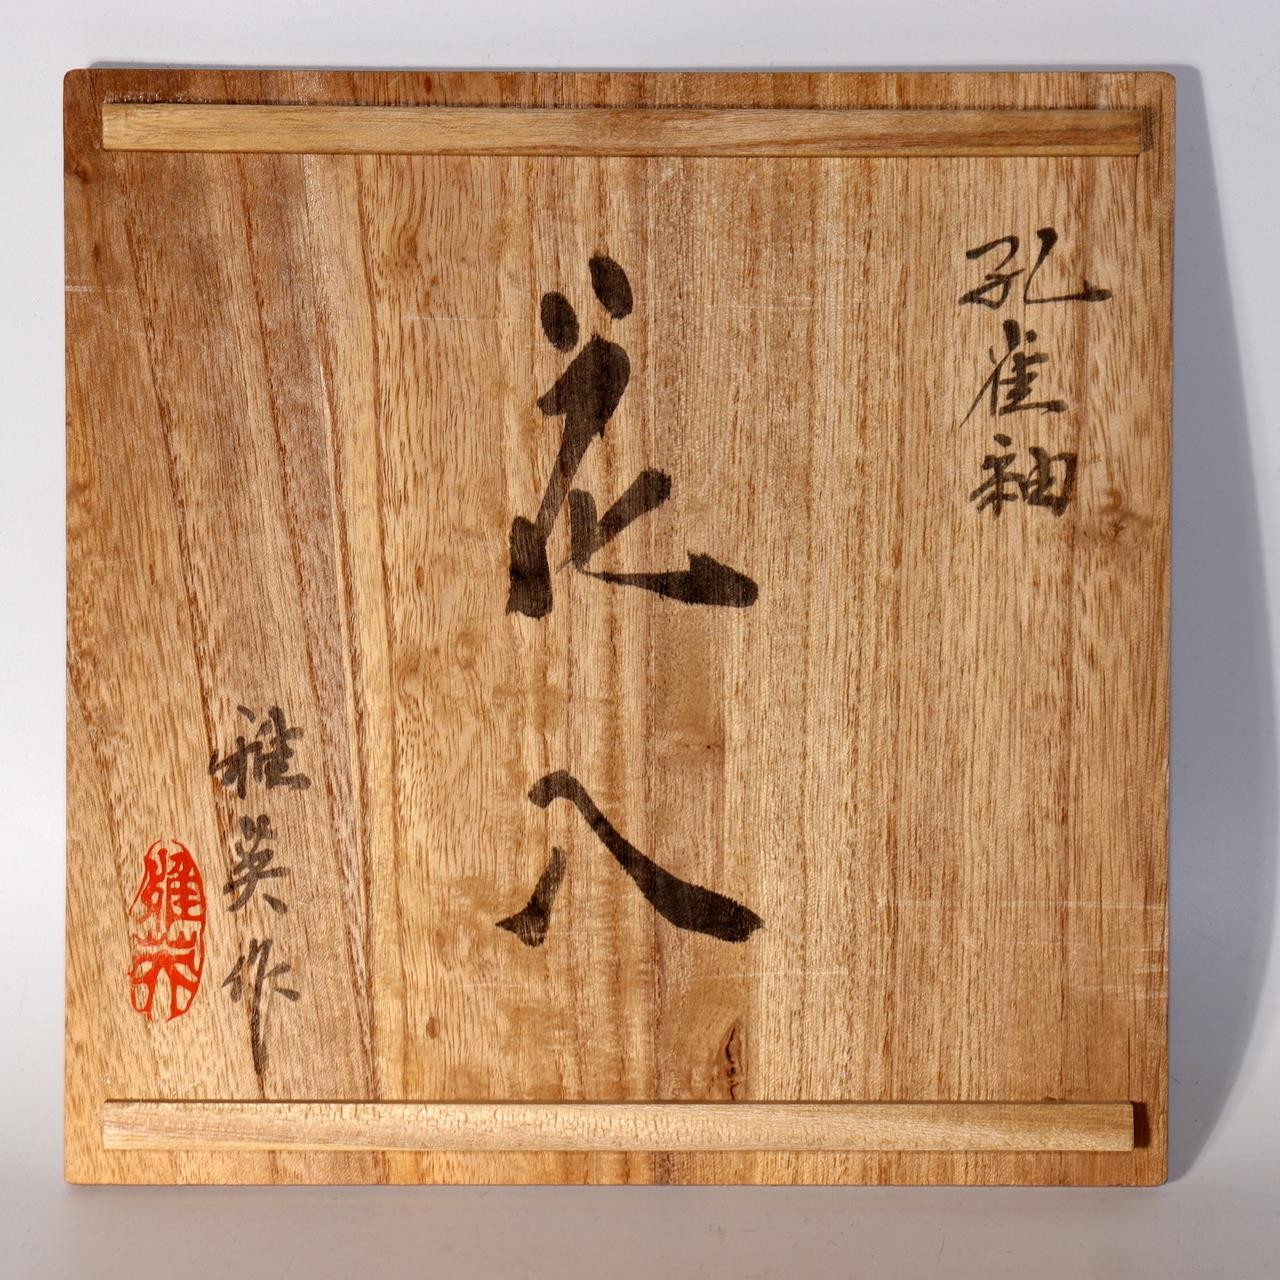 孔雀釉
花入
雅英作
雅英